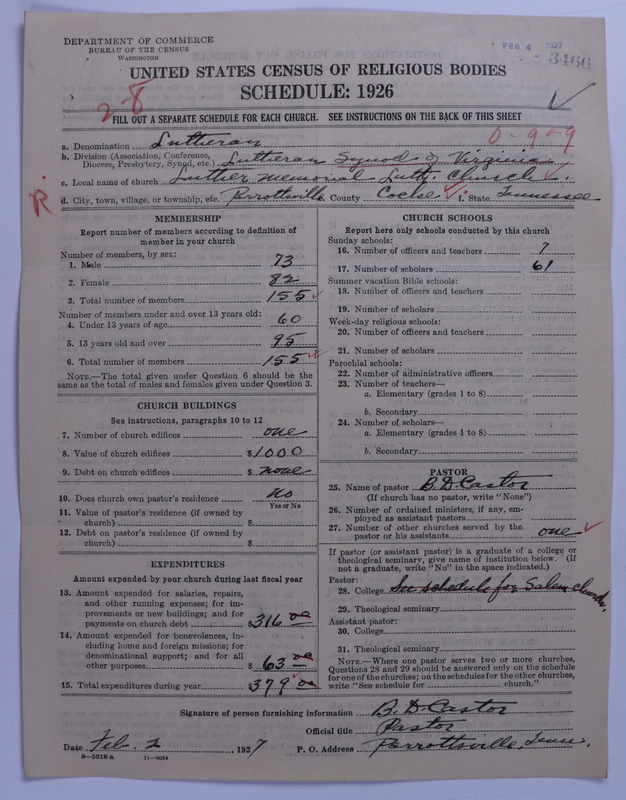 DEPARTMENT OF COMMERCE
BUREAU OF THE CENSUS
WASHINGTON
FEB 4 1927
3466
UNITED STATES CENSUS OF RELIGIOUS BODIES
SCHEDULE: 1926
2-8
FILL OUT A SEPARATE SCHEDULE FOR EACH CHURCH. SEE INSTRUCTIONS ON THE BACK OF THIS SHEET
0-9-9
a. Denomination Lutheran
b. Division (Association, Conference, Diocese, Presbytery, Synod, etc.) Lutheran Synod of Virginia
c. Local name of church Luther Memorial Luth. Church.
R.
d. City, town, village, or township, etc. Parrottsville e. County Cocke f. State Tennessee
MEMBERSHIP
Report number of members according to definition of
member in your church
Number of members, by sex:
1. Male 73
2. Female 82
3. Total number of members 155
Number of members under and over 13 years old:
4. Under 13 years of age 60
5. 13 years old and over 95
6. Total number of members 155
NOTE.—The total given under Question 6 should be
same as the total of males and females given under Question 3.
CHURCH BUILDINGS
See instructions, paragraphs 10 to 12
7. Number of church edifices one
8. Value of church edifices $1000
9. Debt on church edifices $ none
10. Does church own pastor's residence no
Yes or No
11. Value of pastor's residence (if owned by
church) $
12. Debt on pastor's residence (if owned by
church) $
EXPENDITURES
Amount expended by your church during last fiscal year
13. Amount expended for salaries, repairs,
and other running expenses; for im-
provements or new buildings; and for
payments on church debt $316 00
14. Amount expended for benevolences, in-
cluding home and foreign missions; for
denominational support; and for all
other purposes $ 63 00
15. Total expenditures during year $379 00
CHURCH SCHOOLS
Report here only schools conducted by this church
Sunday schools:
16. Number of officers and teachers 7
17. Number of scholars 61
Summer vacation Bible schools:
18. Number of officers and teachers
19. Number of scholars
Week-day religious schools:
20. Number of officers and teachers
21. Number of scholars
Parochial schools:
22. Number of administrative officers
23. Number of teachers—
a. Elementary (grades 1 to 8)
b. Secondary
24. Number of scholars—
a. Elementary (grades 1 to 8)
b. Secondary
PASTOR
25. Name of pastor B. D. Castor
(If church has no pastor, write "None")
26. Number of ordained ministers, if any, em-
ployed as assistant pastors
27. Number of other churches served by the
pastor or his assistants one
If pastor (or assistant pastor) is a graduate of a college or
theological seminary, give name of institution below. (If
not a graduate, write "No" in the space indicated.)
Pastor:
28. College See schedule for Salem Church.
29. Theological seminary
Assistant pastor:
30. College
31. Theological seminary
NOTE.—Where one pastor serves two or more churches,
Questions 28 and 29 should be answered only on the schedule
for one of the churches; on the schedules for the other churches,
write "See schedule for church."
Signature of person furnishing information B. D. Castor
Official title Pastor
Date Feb. 2, 1927 P. O. Address Parrottsville, Tenn.
8—5518 a 11—9054